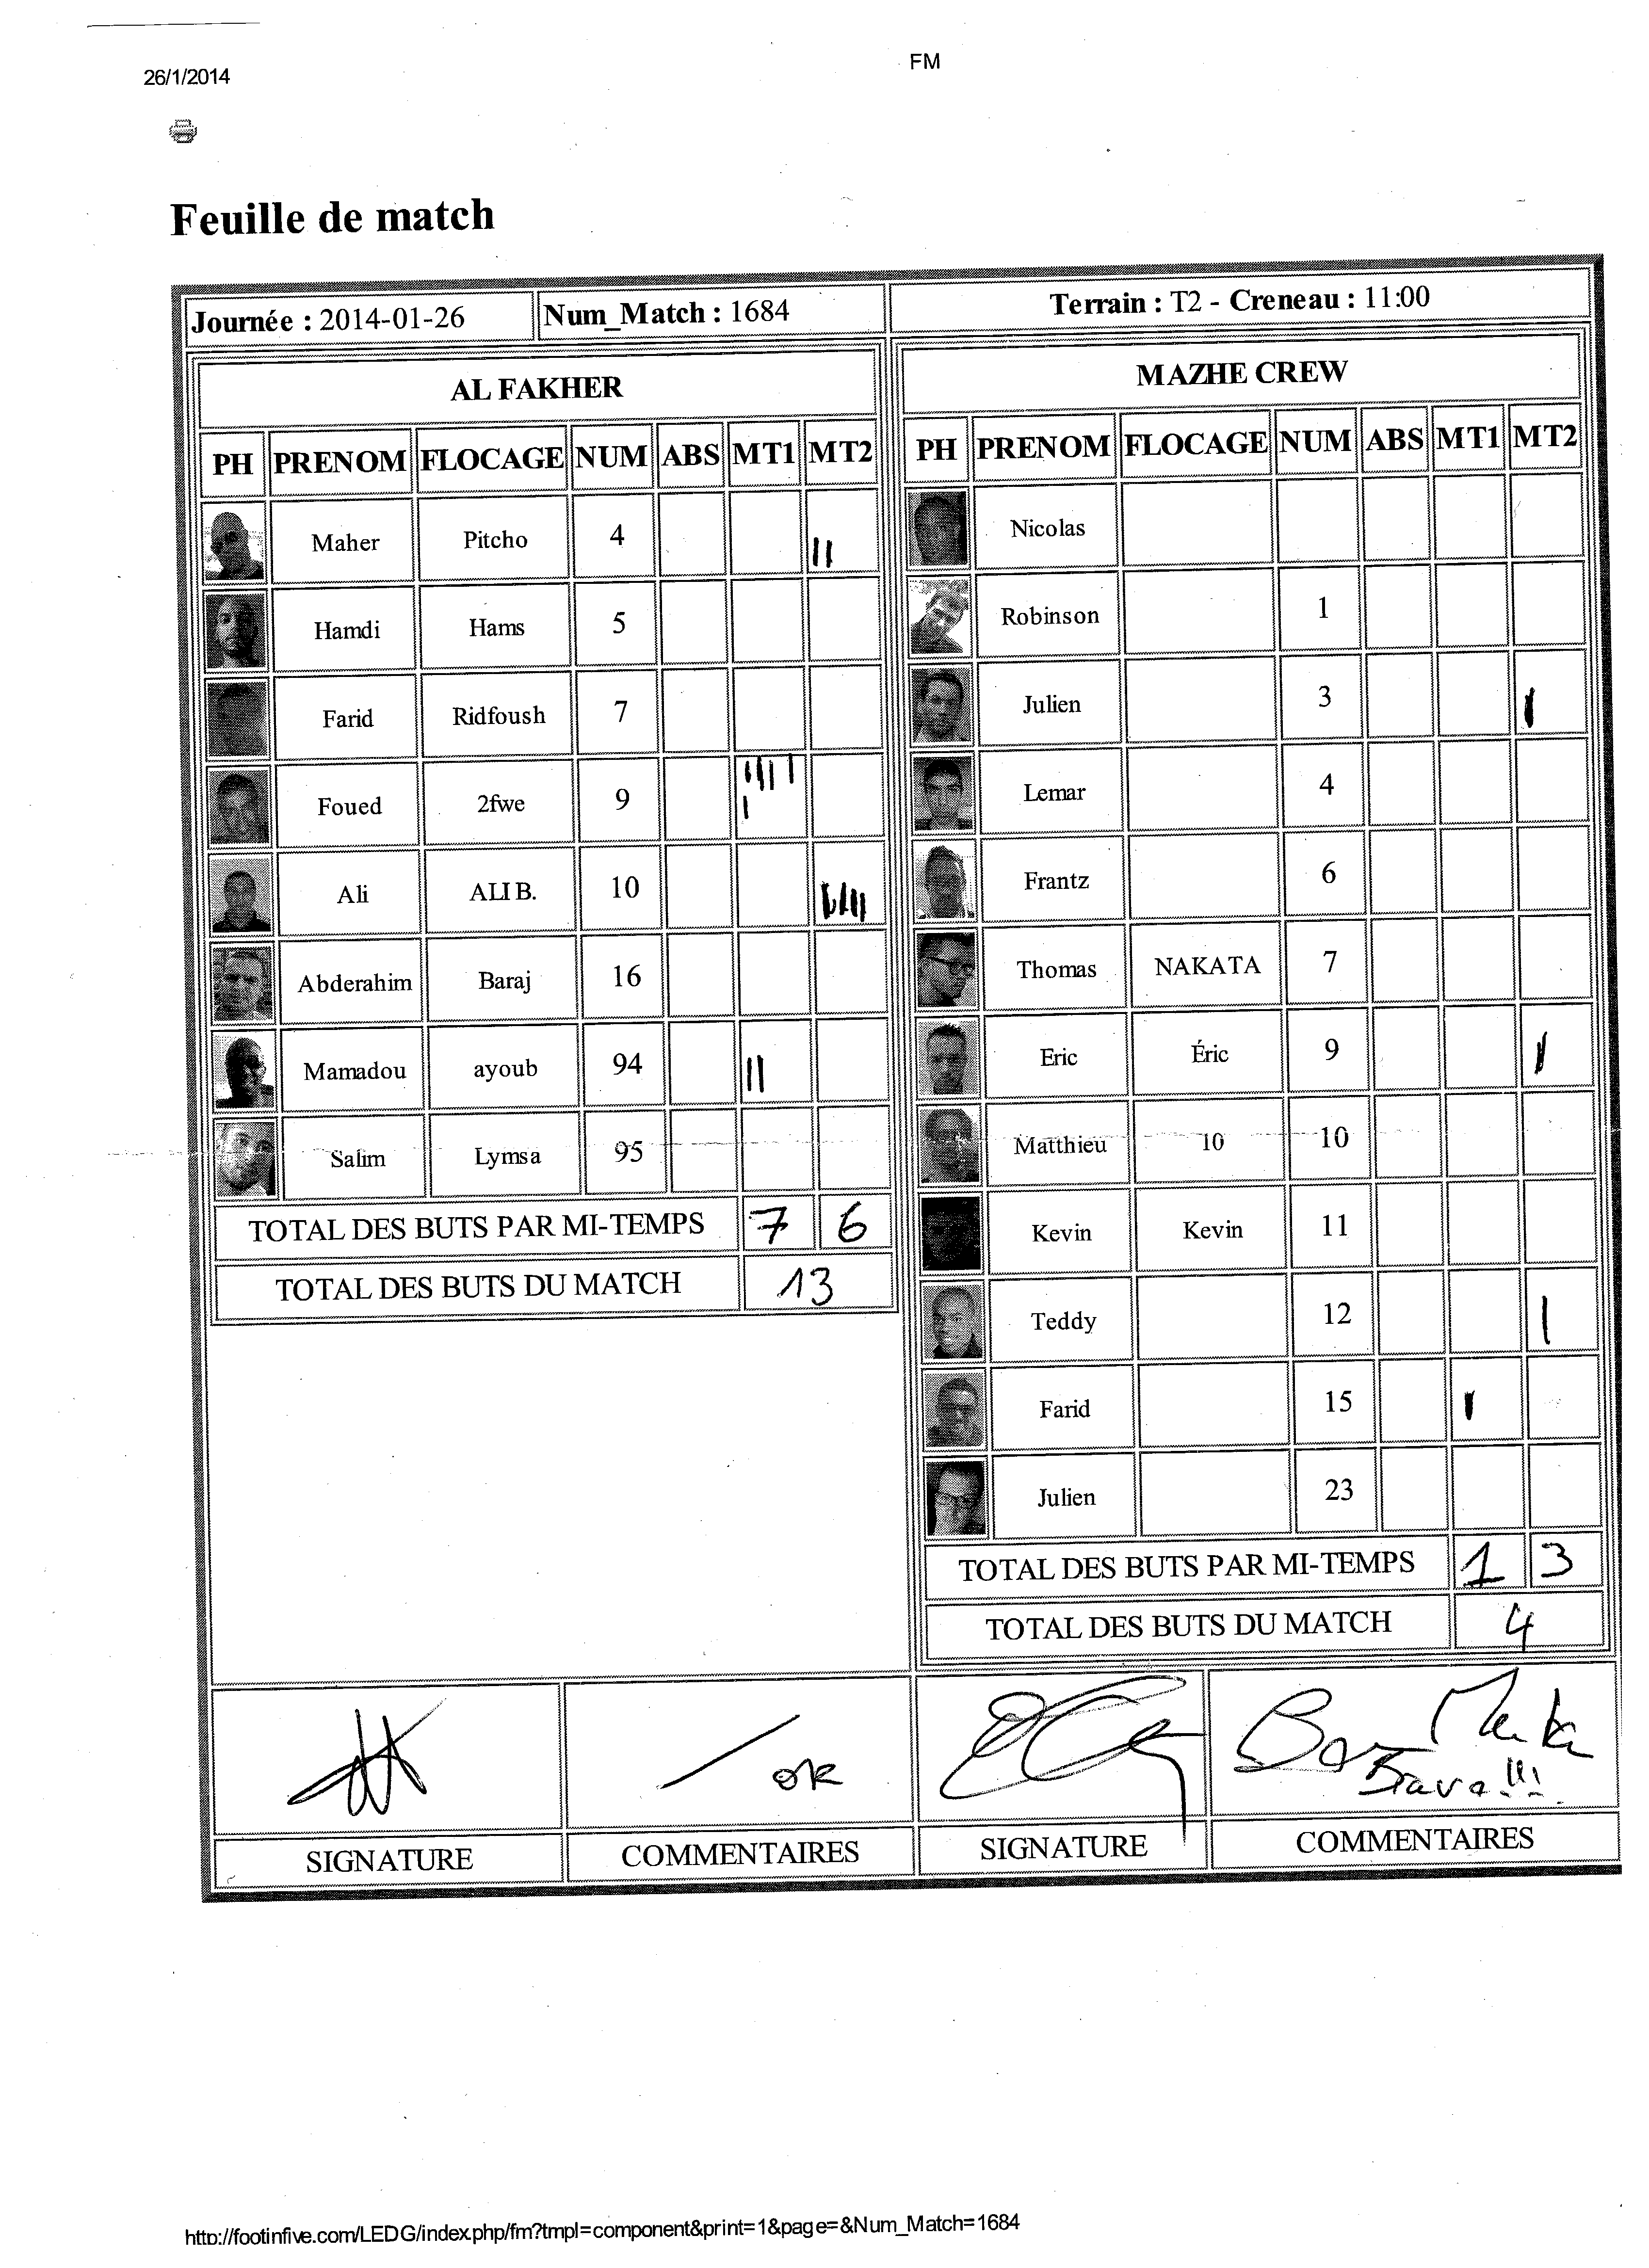 26/1/2014
FM
Feuille de match
Journée : 2014-01-26
Num_Match : 1684
Terrain : T2 - Creneau : 11:00
AL FAKHER
PH PRENOM FLOCAGE NUM ABS MT1 MT2
Maher Pitcho 4 ||
Hamdi Hams 5
Farid Ridfoush 7
Foued 2fwe 9 |||| |
Ali ALI B. 10 ||||
Abderahim Baraj 16
Mamadou ayoub 94 ||
Salim Lymsa 95
TOTAL DES BUTS PAR MI-TEMPS 7 6
TOTAL DES BUTS DU MATCH 13
MAZHE CREW
PH PRENOM FLOCAGE NUM ABS MT1 MT2
Nicolas
Robinson 1
Julien 3 |
Lemar 4
Frantz 6
Thomas NAKATA 7
Eric Éric 9 |
Matthieu 10 10
Kevin Kevin 11
Teddy 12 |
Farid 15 |
Julien 23
TOTAL DES BUTS PAR MI-TEMPS 1 3
TOTAL DES BUTS DU MATCH 4
OK
Bravo !!!
SIGNATURE
COMMENTAIRES
SIGNATURE
COMMENTAIRES
http://footinfive.com/LEDG/index.php/fm?tmpl=component&print=1&page=&Num_Match=1684